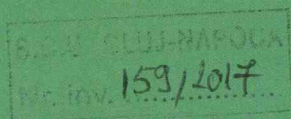 B.C.U. CLUJ-NAPOCA
Nr. inv. 159/2017